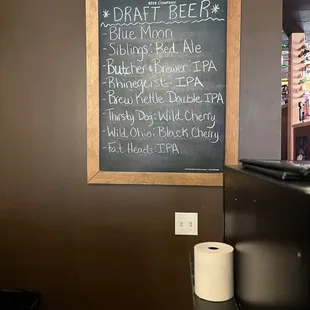 BEER COMPANY
*DRAFT BEER*
-Blue Moon
-Siblings: Red Ale
-Butcher & Brewer: IPA
-Rhinegeist: IPA
-Brew Kettle: Double IPA
-Thirsty Dog: Wild Cherry
-Wild Ohio: Black Cherry
-Fat Heads: IPA